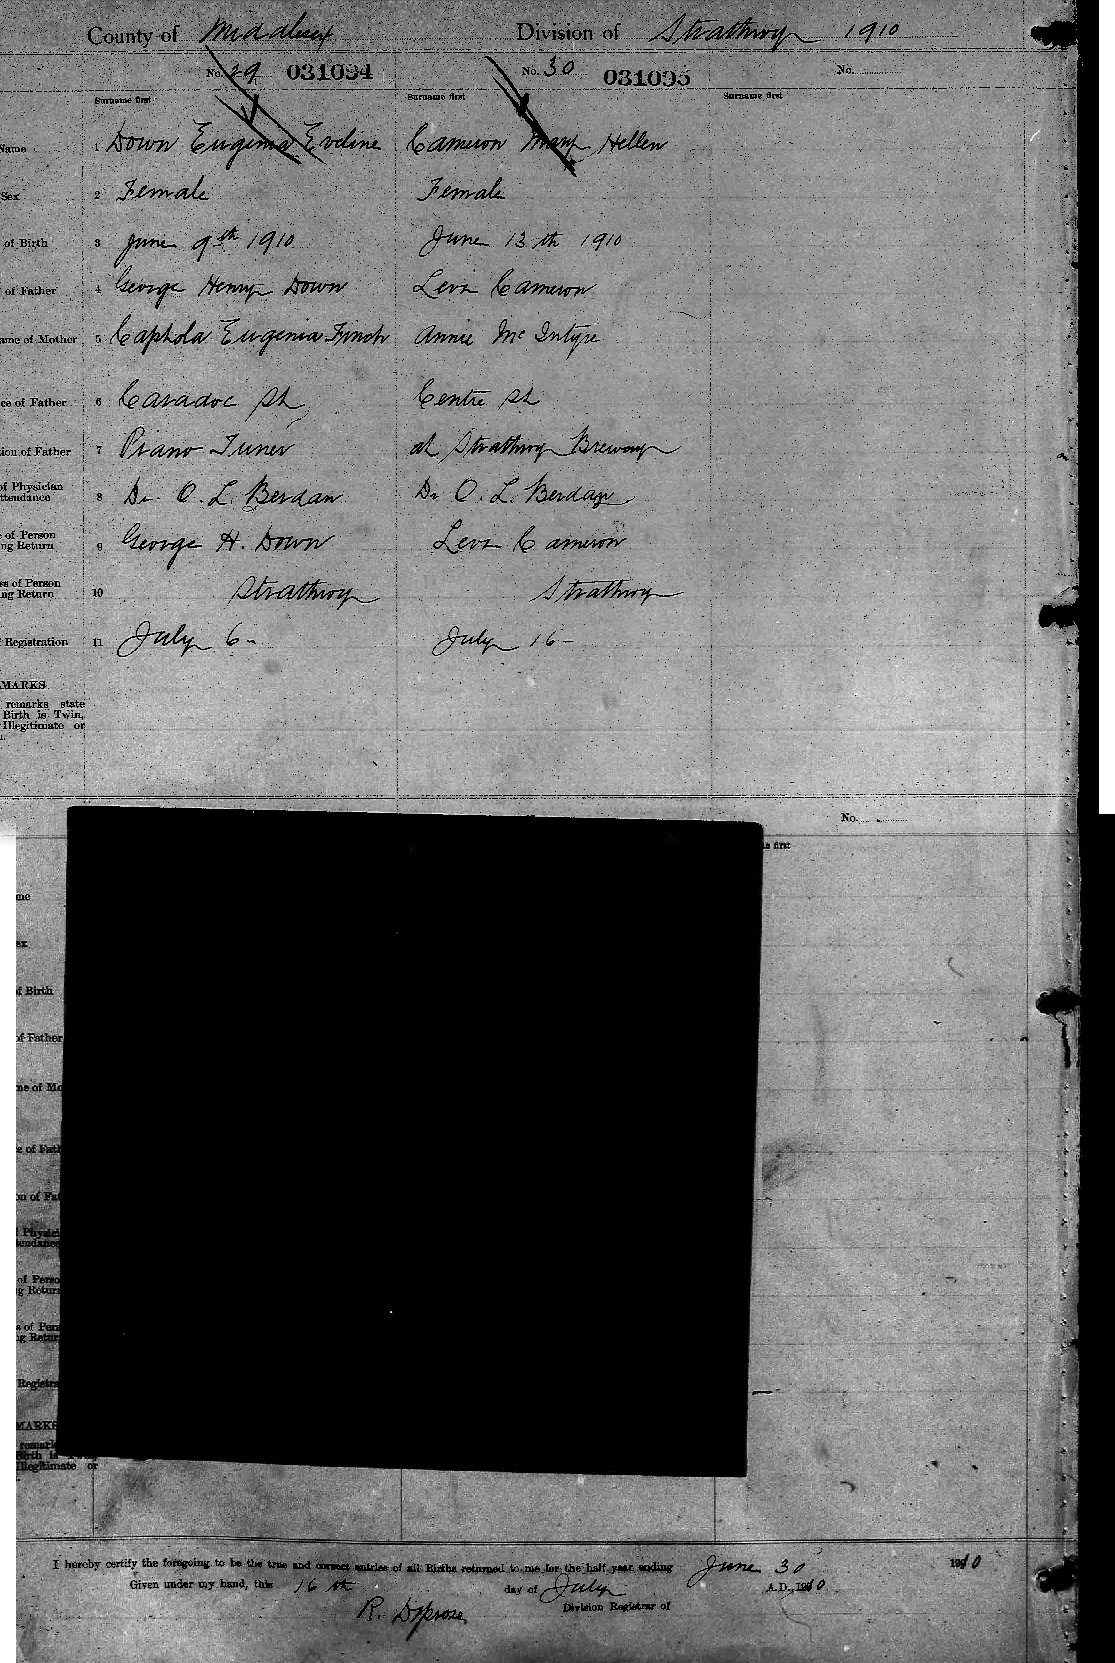 County of Middlesex Division of Strathroy 1910
No. 29 031094 No. 30 031095 No.
Surname first Surname first Surname first
Name 1 Down Eugenia Eveline Cameron Mary Hellen
Sex 2 Female Female
of Birth 3 June 9th 1910 June 13th 1910
of Father 4 George Henry Down Levi Cameron
ame of Mother 5 Eugenia Finch Annie McIntyre
ce of Father 6 Caradoc St Centre St
tion of Father 7 Piano Tuner at Strathroy Brewery
of Physician
ttendance 8 Dr. O. L. Berdan Dr O. L. Berdan
e of Person
ng Return 9 George H. Down Levi Cameron
ss of Person
ng Return 10 Strathroy Strathroy
Registration 11 July 6- July 16-
MARKS
remarks state
Birth is Twin,
Illegitimate or
No.
e first
me
ex
of Birth
of Father
me of Mo
e of Fath
on of Fat
Physici
tendance
of Perso
ng Return
s of Pers
ng Retur
Registra
MARKS
remark
Birth is
Illegitimate or
I hereby certify the foregoing to be the true and correct entries of all Births returned to me for the half year ending June 30 1910
Given under my hand, this 16th day of July A.D., 1910
R. Division Registrar of